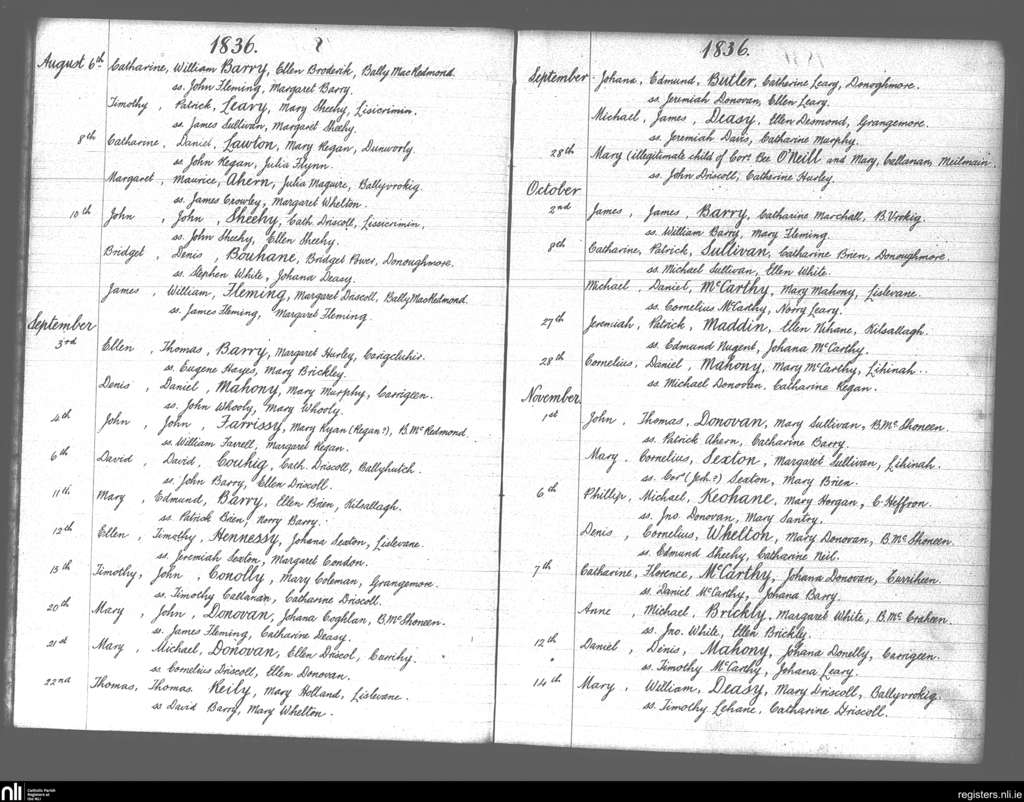 1836.
August 6th Catharine, William Barry, Ellen Broderik, Bally MacRedmond.
ss. John Fleming, Margaret Barry.
Timothy, Patrick, Leary, Mary Sheehy, Lisicrimin.
ss. James Sullivan, Margaret Sheehy.
8th Catharine, Daniel, Lawton, Mary Regan, Dunworly.
ss John Regan, Julia Flynn.
Margaret, Maurice, Ahern, Julia Maguire, Ballyvrokig.
ss. James Crowley, Margaret Whelton.
10th John, John, Sheehy, Cath Driscoll, Lisicrimin,
ss. John Sheehy, Ellen Sheehy.
Bridget, Denis, Bouhane, Bridget Power, Donoughmore.
ss. Stephen White, Johana Deasy.
James, William, Fleming, Margaret Driscoll, Bally MacRedmond.
ss. James Fleming, Margaret Fleming.
September
3rd Ellen, Thomas, Barry, Margaret Hurley, Carigcluhir.
ss. Eugene Hayes, Mary Brickley.
Denis, Daniel, Mahony, Mary Murphy, Carrigeen.
ss. John Whooly, Mary Whooly.
4th John, John, Farrissy, Mary Ryan (Regan?), B.Mc Redmond.
ss. William Farrell, Margaret Regan.
6th David, David, Couhig, Cath. Driscoll, Ballyhutch.
ss. John Barry, Ellen Driscoll.
11th Mary, Edmund, Barry, Ellen Brien, Kilsallagh.
ss. Patrick Brien, Norry Barry.
12th Ellen, Timothy, Hennessy, Johana Sexton, Lislevane.
ss. Jeremiah Sexton, Margaret Condon.
15th Timothy, John, Conolly, Mary Coleman, Grangemore.
ss. Timothy Callanan, Catharine Driscoll.
20th Mary, John, Donovan, Johana Coghlan, B.Mc Shoneen.
ss. James Fleming, Catharine Deasy.
21st Mary, Michael, Donovan, Ellen Driscol, Currihy.
ss. Cornelius Driscoll, Ellen Donovan.
22nd Thomas, Thomas. Keily, Mary Holland, Lislevane.
ss David Barry, Mary Whelton.
1836.
September Johana, Edmund, Butler, Catharine Leary, Donoghmore.
ss Jeremiah Donovan, Ellen Leary.
Michael, James, Deasy, Ellen Desmond, Grangemore.
ss. Jeremiah Davis, Catharine Murphy.
28th Mary (illegitimate child of Cors. Bee O'Neill and Mary, Callanan, Meilmain.
ss. John Driscoll, Catherine Hurley.
October
2nd James, James, Barry, Catharine Marchall, B. Vrokig.
ss. William Barry, Mary Fleming.
8th Catharine, Patrick, Sullivan, Catharine Brien, Donoughmore.
ss Michael Sullivan, Ellen White.
Michael, Daniel, McCarthy, Mary Mahony, Lislevane.
ss. Cornelius McCarthy, Norry Leary.
27th Jeremiah, Patrick, Maddin, Ellen Kihane, Kilsallagh.
ss. Edmund Nugent, Johana McCarthy.
28th Cornelius, Daniel, Mahony, Mary McCarthy, Lihinah.
ss Michael Donovan, Catharine Regan.
November
1st John, Thomas, Donovan, Mary Sullivan, B.Mc Shoneen.
ss. Patrick Ahern, Catharine Barry.
Mary. Cornelius, Sexton, Margaret Sullivan, Lihinah.
ss. Cors (Jerh.?) Sexton, Mary Brien.
6th Phillip, Michael, Keohane, Mary Horgan, C. Heffron.
ss. Jno. Donovan, Mary Santry.
Denis, Cornelius, Whelton, Mary Donovan, B.Mc Shoneen.
ss. Edmund Sheehy, Catharine Neil.
7th Catharine, Florence, McCarthy, Johana Donovan, Curriheen.
ss. Daniel McCarthy, Johana Barry.
Anne, Michael, Brickly, Margaret White, B.Mc Craheen.
ss. Jno. White, Ellen Brickly.
12th Daniel, Dinis, Mahony, Johana Donelly, Carrigeen.
ss. Timothy McCarthy, Johana Leary.
14th Mary, William, Deasy, Mary Driscoll, Ballyvrokig.
ss. Timothy Lehane, Catharine Driscoll.
nli Catholic Parish Registers at the NLI
registers.nli.ie